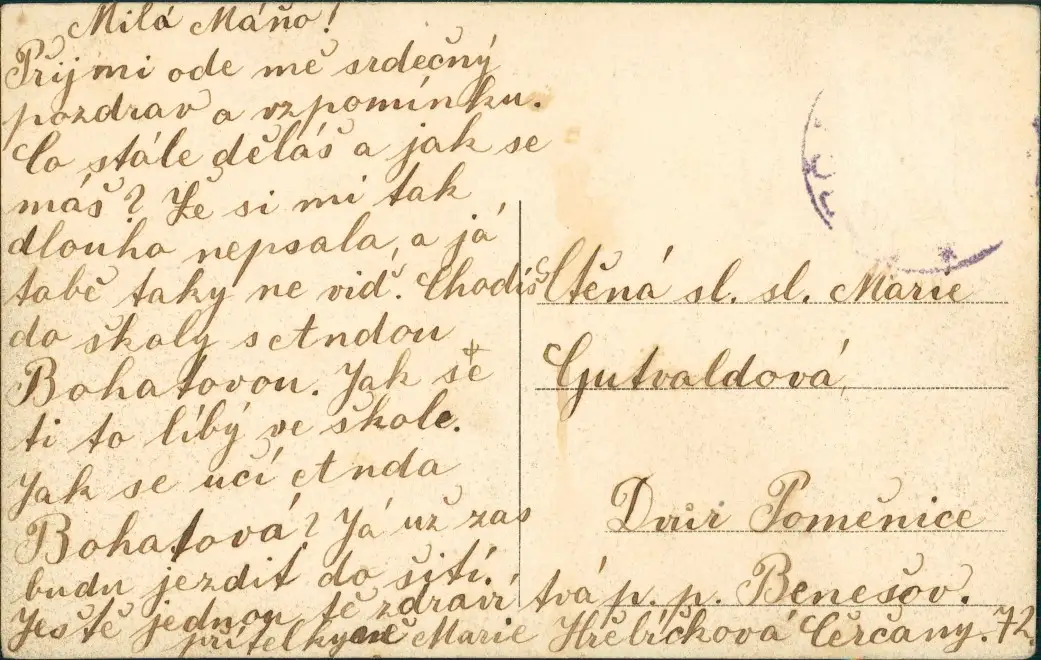 Milá Máňo!
Přijmi ode mě srdečný
pozdrav a vzpomínku.
Co stále děláš a jak se
máš? Že si mi tak
dlouho nepsala, a já
tobě taky ne viď. Chodíš
do školy s Andou
Bohatovou. Jak se
ti to líbý ve škole.
Jak se učí Anda
Bohatová? Já už zas
budu jezdit do šití.
Ještě jednou tě zdraví tvá
přítelkyně Marie Hřebíčková Čerčany. 72
Ctěná sl. sl. Marie
Gutvaldová
Dvůr Poměnice
p. p. Benešov.